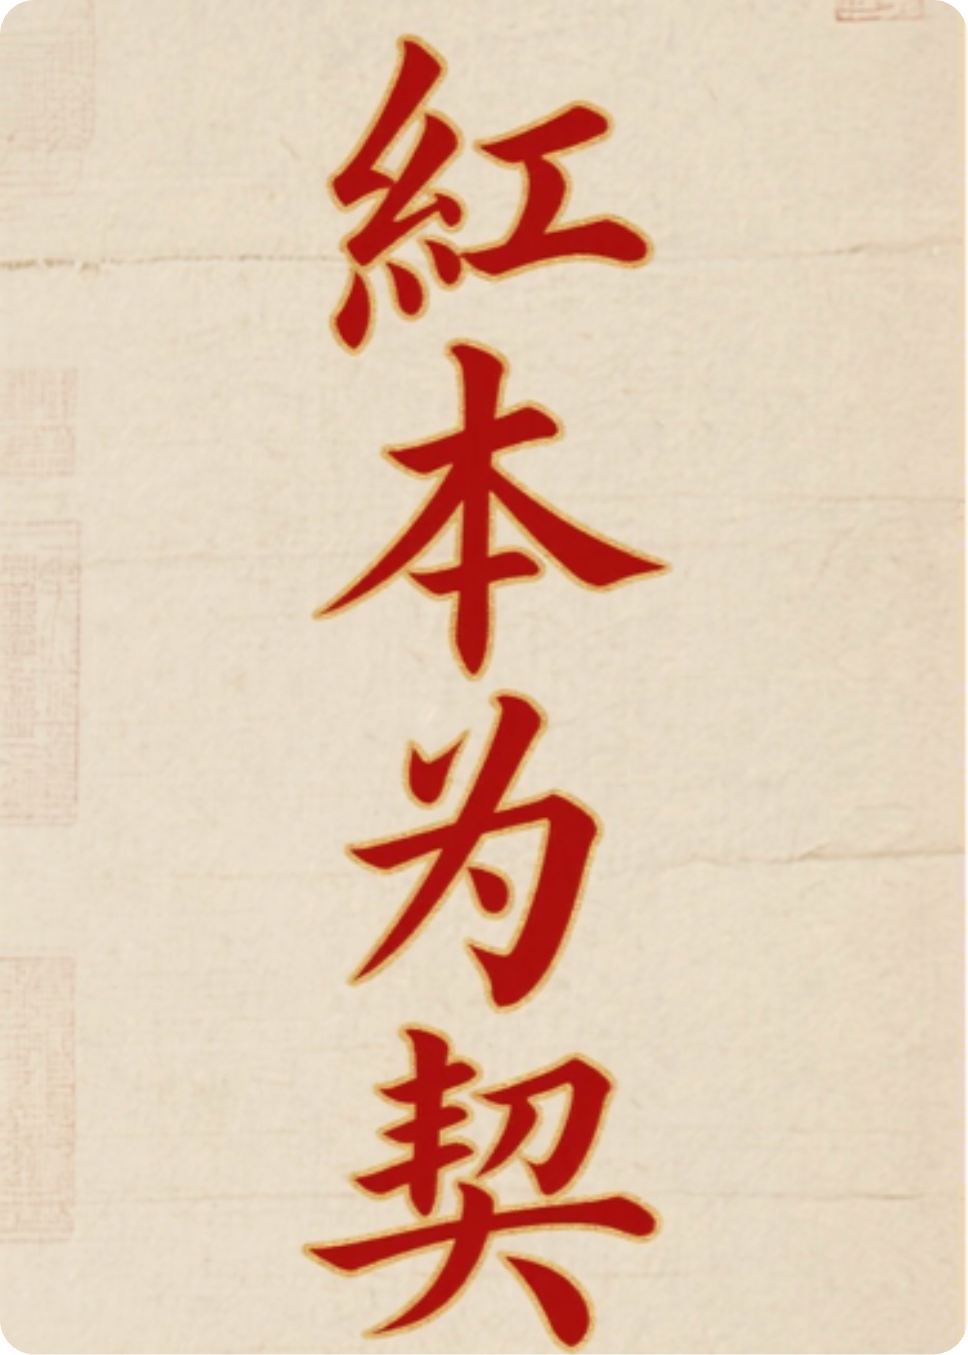 紅本为契